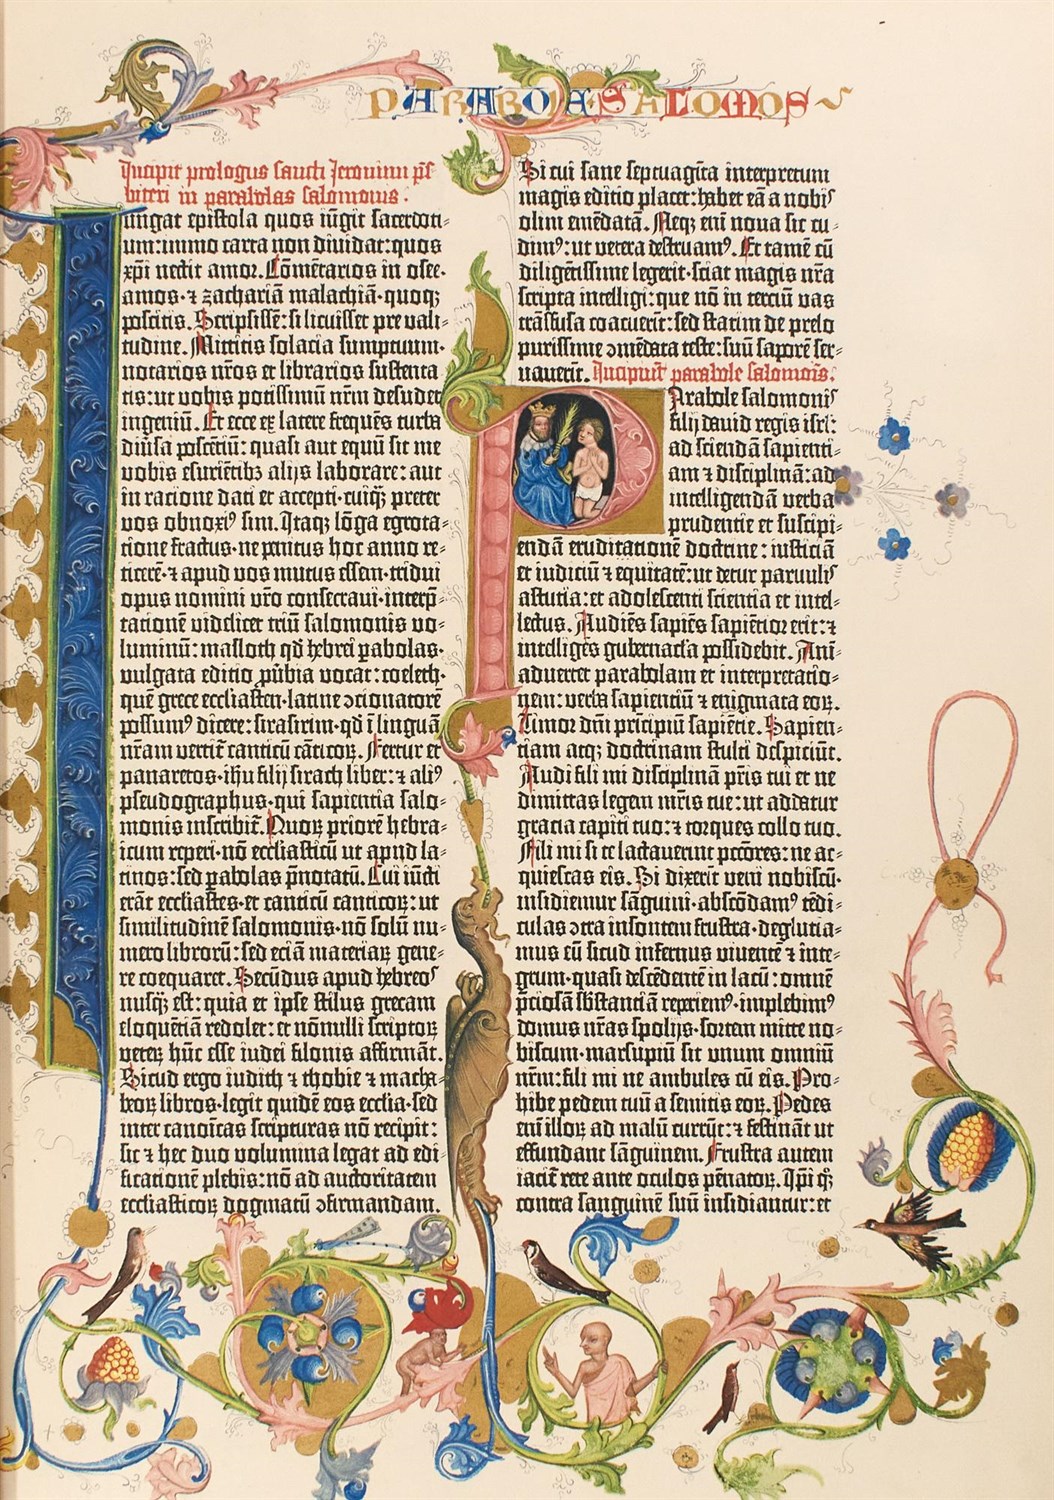 PARABOLE SALOMOIS
Incipit prologus sancti Jeronimi p̄s
biteri in parabolas salomonis.
Iungat epistola quos iūgit sacerdoti⸗
um: immo carta non dividat: quos
xp̄i nectit amor. Cōmētarios in osee·
amos·⁊ zachariā malachiā·quoqꝫ
poscitis. Scripsissē: si licuisset pre vali⸗
tudine. Mittitis solacia sumptuum·
notarios nr̄os et librarios sustenta
tis: ut vobis potissimū nr̄m desudet
ingeniū. Et ecce ex latere frequēs turba
diūsa poscētiū: quasi aut equū sit me
vobis esuriētibꝫ alijs laborare: aut
in ratione dati et accepti·cuiq̄ꝫ preter
vos obnoxiꝰ sim. Itaqꝫ lōga egrota⸗
tione fractus·ne penitus hoc anno re⸗
ticerē·⁊ apud vos mutus essem·tridui
opus nomini vr̄o consecravi·interp̄
tationē videlicet triū salomonis vo⸗
luminū: masloth qd̄ hebrei ꝑabolas·
vulgata editio ꝓūbia vocat: coeleth·
quē grece ecclīasten·latine ↄcionatorē
possumꝰ dicere: sirasirim·qd̄ ī linguā
nr̄am vertit̄ canticū cāticoꝝ. Fertur et
panaretos·ih̄u filij sirach liber: ⁊ aliꝰ
pseudographus·qui sapientia salo⸗
monis inscribit̄. Quoꝝ priorē hebra⸗
icum reperi·nō ecclīasticū ut apud la⸗
tinos: sed ꝑabolas p̄notatū. Cui iūcti
erāt ecclīastes·et canticū canticoꝝ: ut
similitudinē salomonis·nō solū nu⸗
mero libroruꝫ: sed eciā materiaꝝ gene⸗
re coequaret. Secūdus apud hebreoꝰ
nusq̄ꝫ est: quia et ipse stilus grecam
eloquētiā redolet: et nōnulli scriptoꝝ
veteꝝ hūc esse iudei filonis affirmāt.
Sicud ergo iudith ⁊ thobie ⁊ macha⸗
beoꝝ libros·legit quidē eos ecclīa·sed
inter canoīcas scripturas nō recipit:
sic ⁊ hec duo volumina legat ad edi⸗
ficationē plebis: nō ad auctoritatem
ecclīasticoꝝ dogmatū ↄfirmandam.
Si cui sane septuagīta interpretum
magis editio placet: habet eā a nobiꝰ
olim emēdatā. Neqꝫ enī noua sic cu⸗
dimꝰ: ut vetera destruamꝰ. Et tamē cū
diligētissime legerit·sciat magis nr̄a
scripta intelligi: que nō in terciū vas
trāsfusa coacuerīt: sed statim de prelo
purissime ↄmēdata teste: suū saporē ser⸗
uauerīt. Incipiūt parabole salomōis.
Parabole salomoniꝰ
filij dauid regis isrl̄:
ad sciendā sapienti⸗
am ⁊ disciplinā: ad
intelligendā verba
prudentie et suscipi⸗
endā eruditationē doctrine: iusticiā
et iudiciū ⁊ equitatē: ut detur paruuliꝰ
astutia: et adolescenti scientia et intel⸗
lectus. Audiēs sapiēs sapiētior erit: ⁊
intelligēs gubernacl̄a possidebit. Anī⸗
aduertet parabolam et interpretatio⸗
nem: verba sapienciū ⁊ enigmata eoꝝ.
Timor dn̄i prīcipiū sapiētie. Sapien⸗
tiam atqꝫ doctrinam stulti despiciūt.
Audi fili mi disciplinā pr̄is tui et ne
dimittas legem mr̄is tue: ut addatur
gracia capiti tuo: ⁊ torques collo tuo.
Fili mi si te lactauerint pcc̄ores: ne ac⸗
quiescas eis. Si dixerīt veni nobiscū·
insidiemur sāguini·abscōdamꝰ tēdi⸗
culas ↄtra insontem frustra·deglutia⸗
mus eū sicud infernus viuentē ⁊ inte⸗
grum·quasi descēdentē in lacū: omnē
p̄ciosā sb̄stanciā reperiemꝰ·implebimꝰ
domus nr̄as spolijs·sortem mitte no⸗
biscum·marsupiū sit vnum omniū
nr̄m: fili mi ne ambules cū eis. Pro⸗
hibe pedem tuū a semitis eoꝝ. Pedes
enī illoꝝ ad malū currūt: ⁊ festināt ut
effundant sāguinem. Frustra autem
iacit̄ rete ante oculos pēnatoꝝ. Ip̄i q̄ꝫ
contra sanguinē suū insidiantur: et